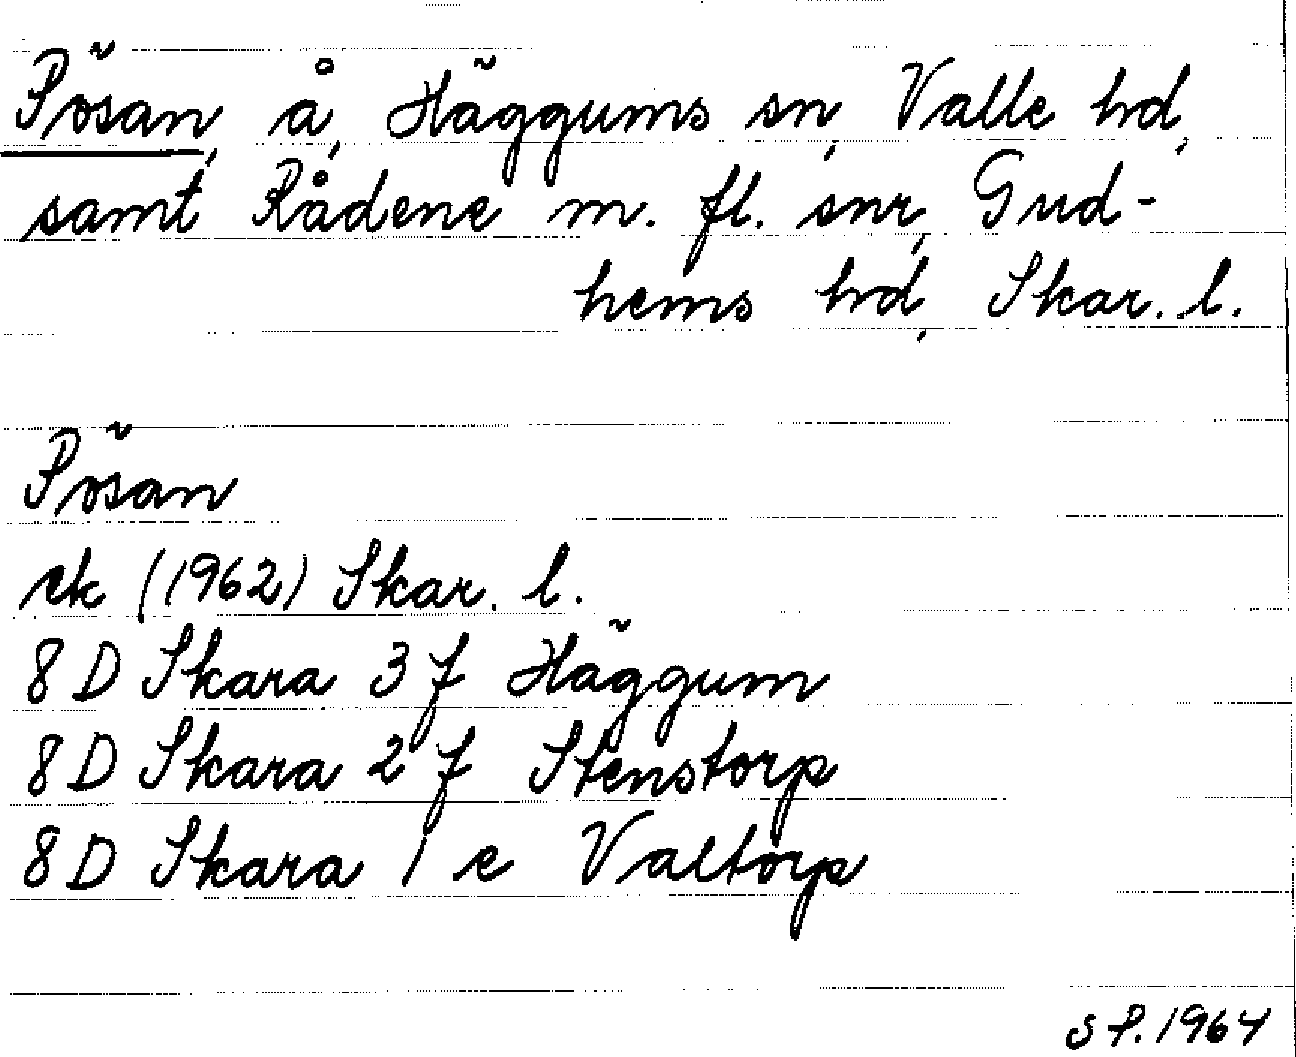 Pösan, å, Häggums sn, Valle hd,
samt Rådene m. fl. snr, Gud-
hems hd, Skar. l.
Pösan
ek (1962) Skar. l.
8 D Skara 3 f Häggum
8 D Skara 2 f Stenstorp
8 D Skara 1 e Valtorp
SP. 1964